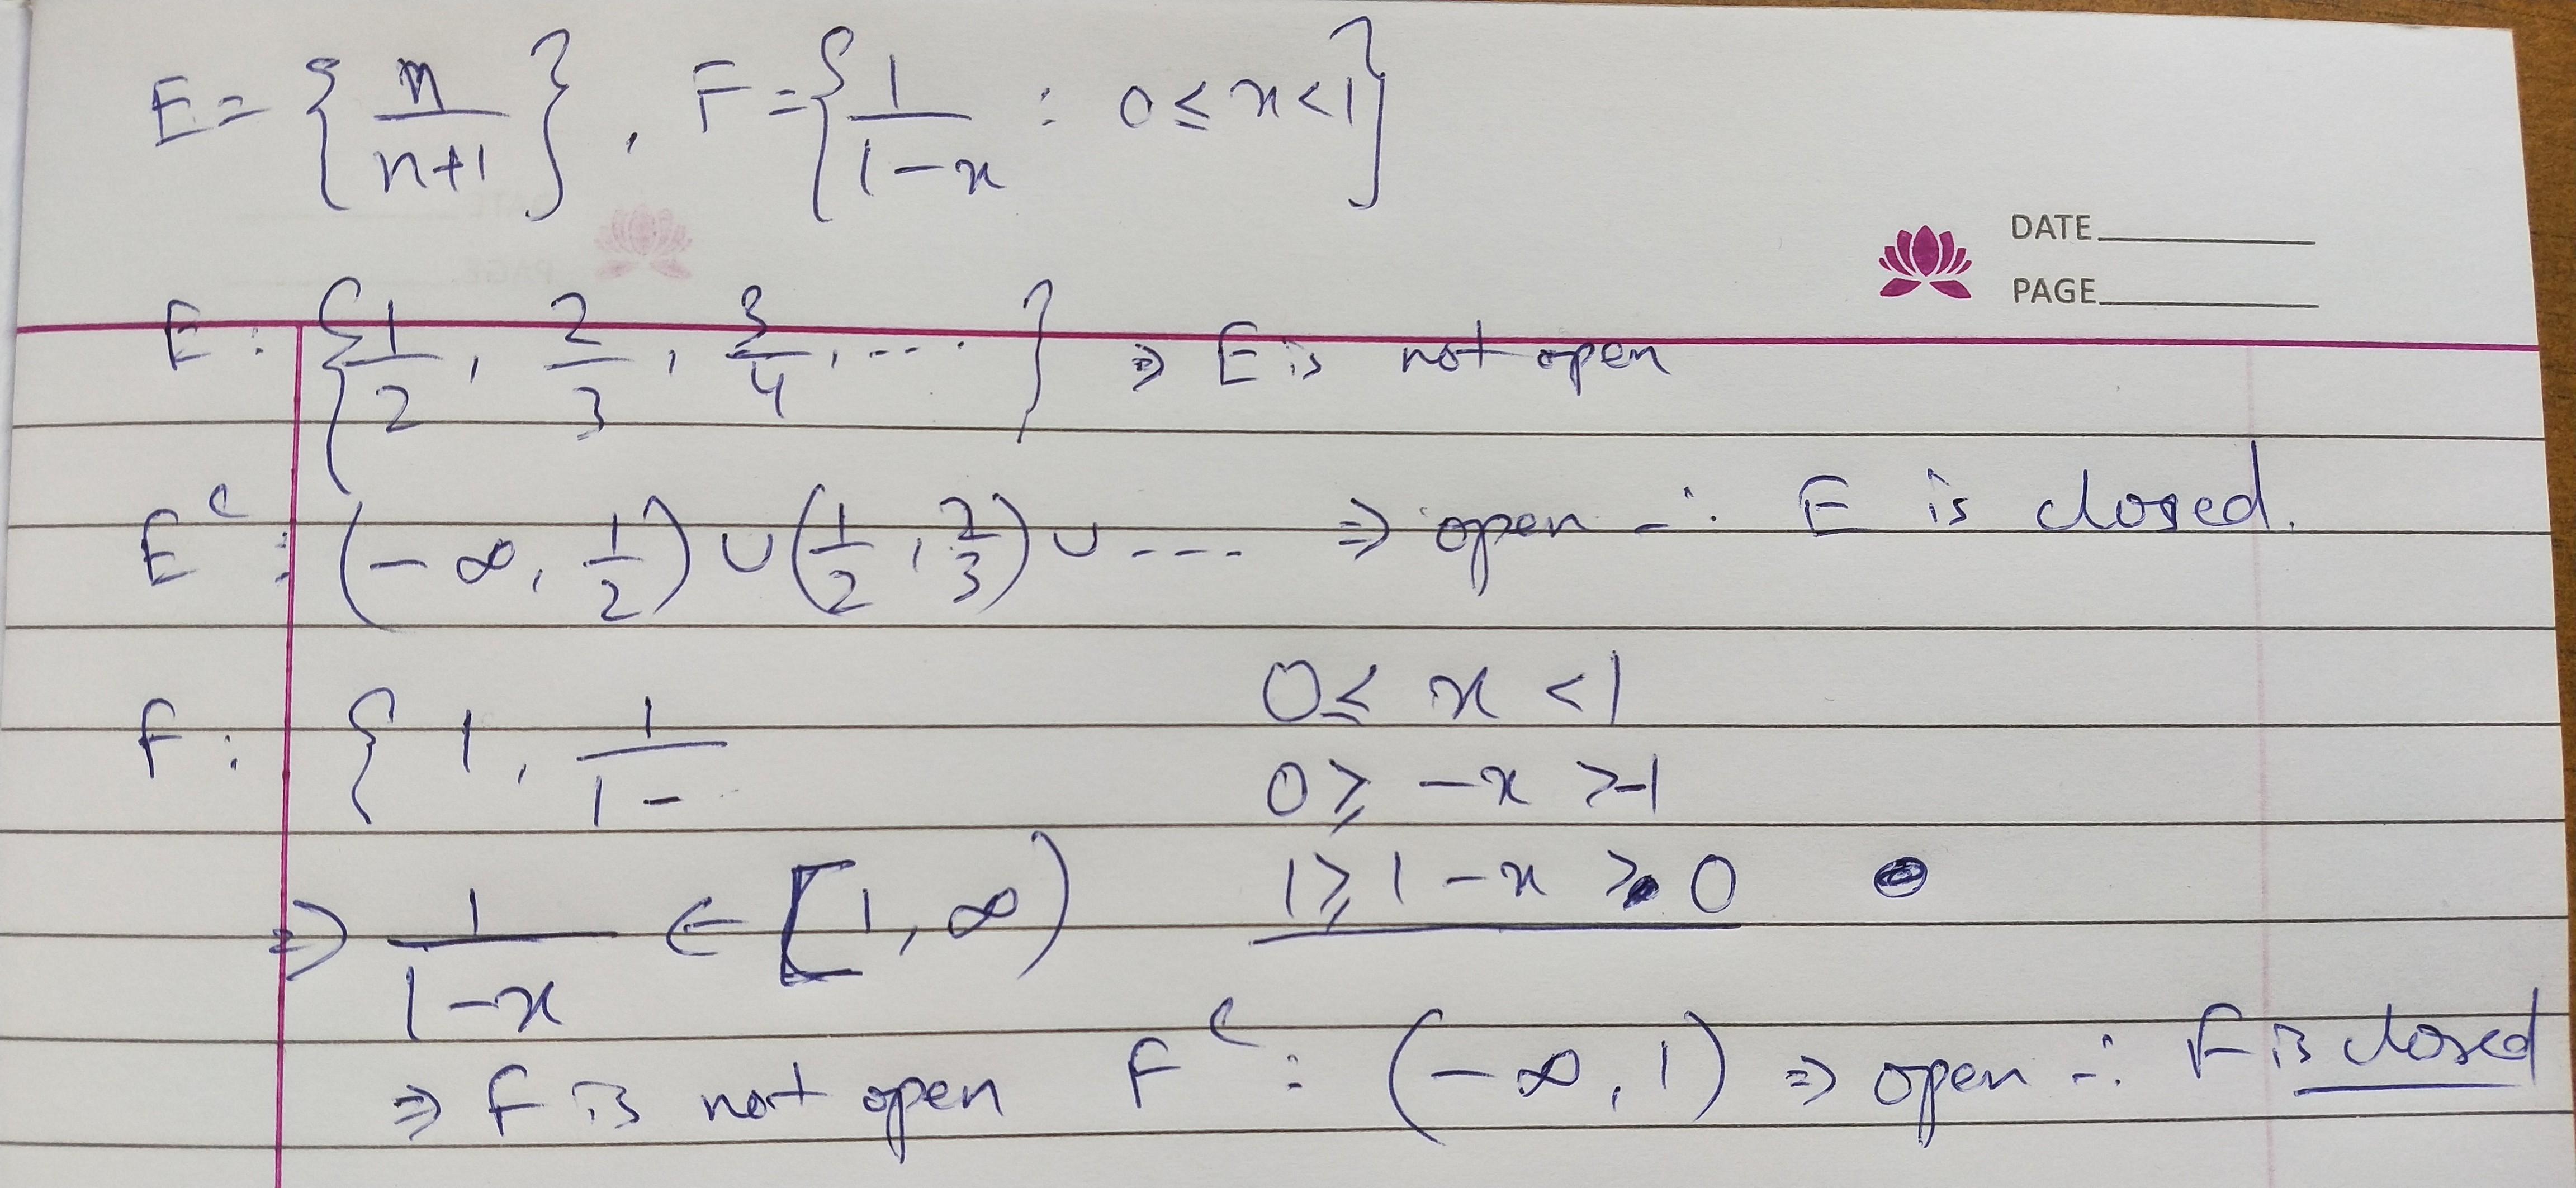 E = { n/n+1 } , F = { 1/1-x : 0 ≤ x < 1 }
DATE
PAGE
E : { 1/2 , 2/3 , 3/4 , .... } ⇒ E is not open
E^c : (-∞, 1/2) ∪ (1/2 , 2/3) ∪ ---- ⇒ open ∴ E is closed.
0 ≤ x < 1
F : { 1 , 1/1-
0 ≥ -x > -1
1 ≥ 1 - x > 0
⇒ 1/1-x ∈ [1, ∞)
⇒ F is not open F^c : (-∞, 1) ⇒ open ∴ F is closed